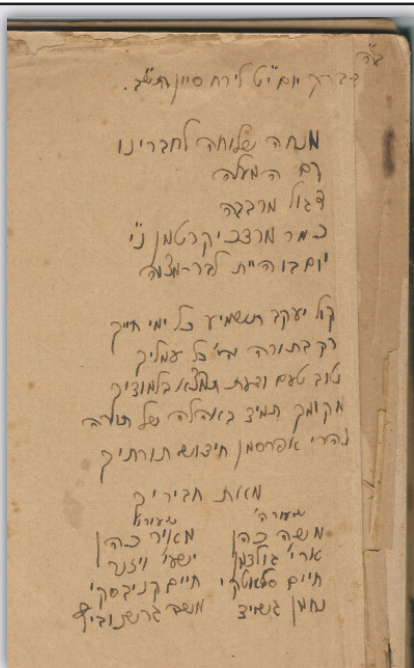 ב"ה
ברק יום י"ט לירח סיון תש"ב.
מנחה שלוחה לחברינו
רם המעלה
דגול מרבבה
כמר מרדכי קרטמן נ"י
יום בו היית לבר-מצוה
קול יעקב תשמיע כל ימי חייך
רק בתורה יהי' כל עמליך
טוב טעם ודעת תמצא בלמודיך
מקומך תמיד באוהלה של תורה
נהרי אפרסמן חידוש תורתיך
מאת חביריך
משה כהן מאיר כהן
ארי' גולדמן ישעי' ויזנר
חיים סלאטקי חיים קניבסקי
נחמן משה גרשנוביץ